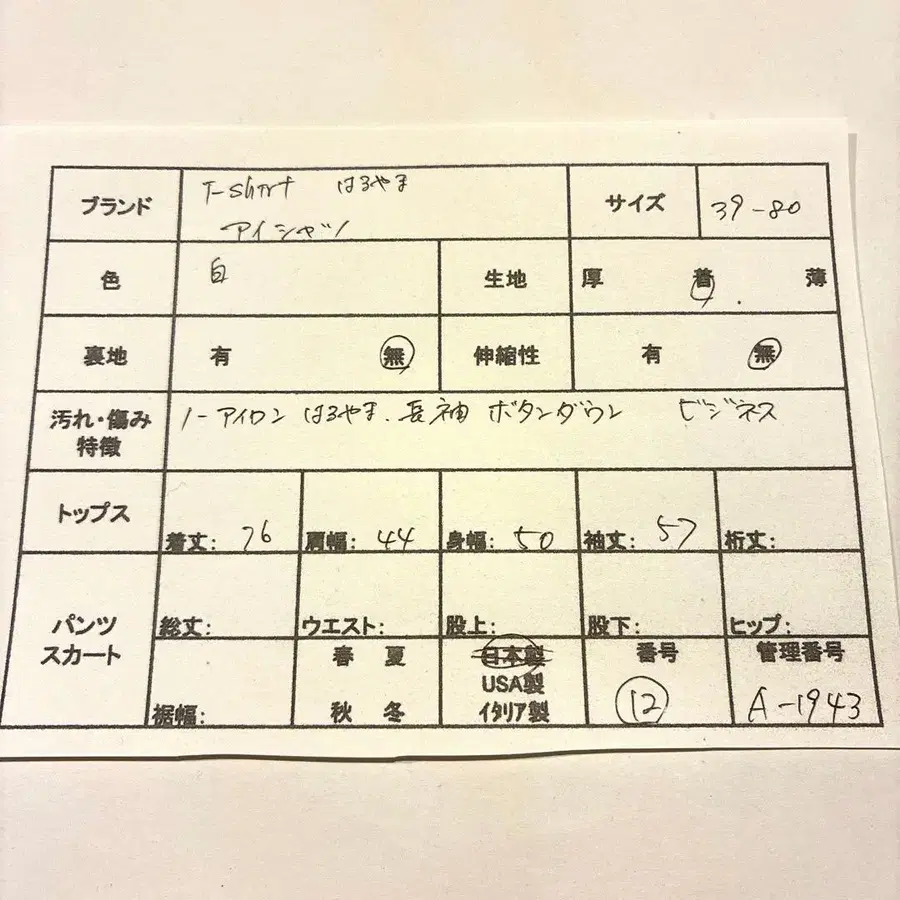 ブランド T-shirt はるやま サイズ 39-80
アイシャツ
色 白 生地 厚 普 薄
裏地 有 無 伸縮性 有 無
汚れ・傷み ノーアイロン はるやま、長袖 ボタンダウン ビジネス
特徴
トップス 着丈: 76 肩幅: 44 身幅: 50 袖丈: 57 裄丈:
パンツ 総丈: ウエスト: 股上: 股下: ヒップ:
スカート 春 夏 日本製 番号 管理番号
USA製
裾幅: 秋 冬 イタリア製 12 A-1943